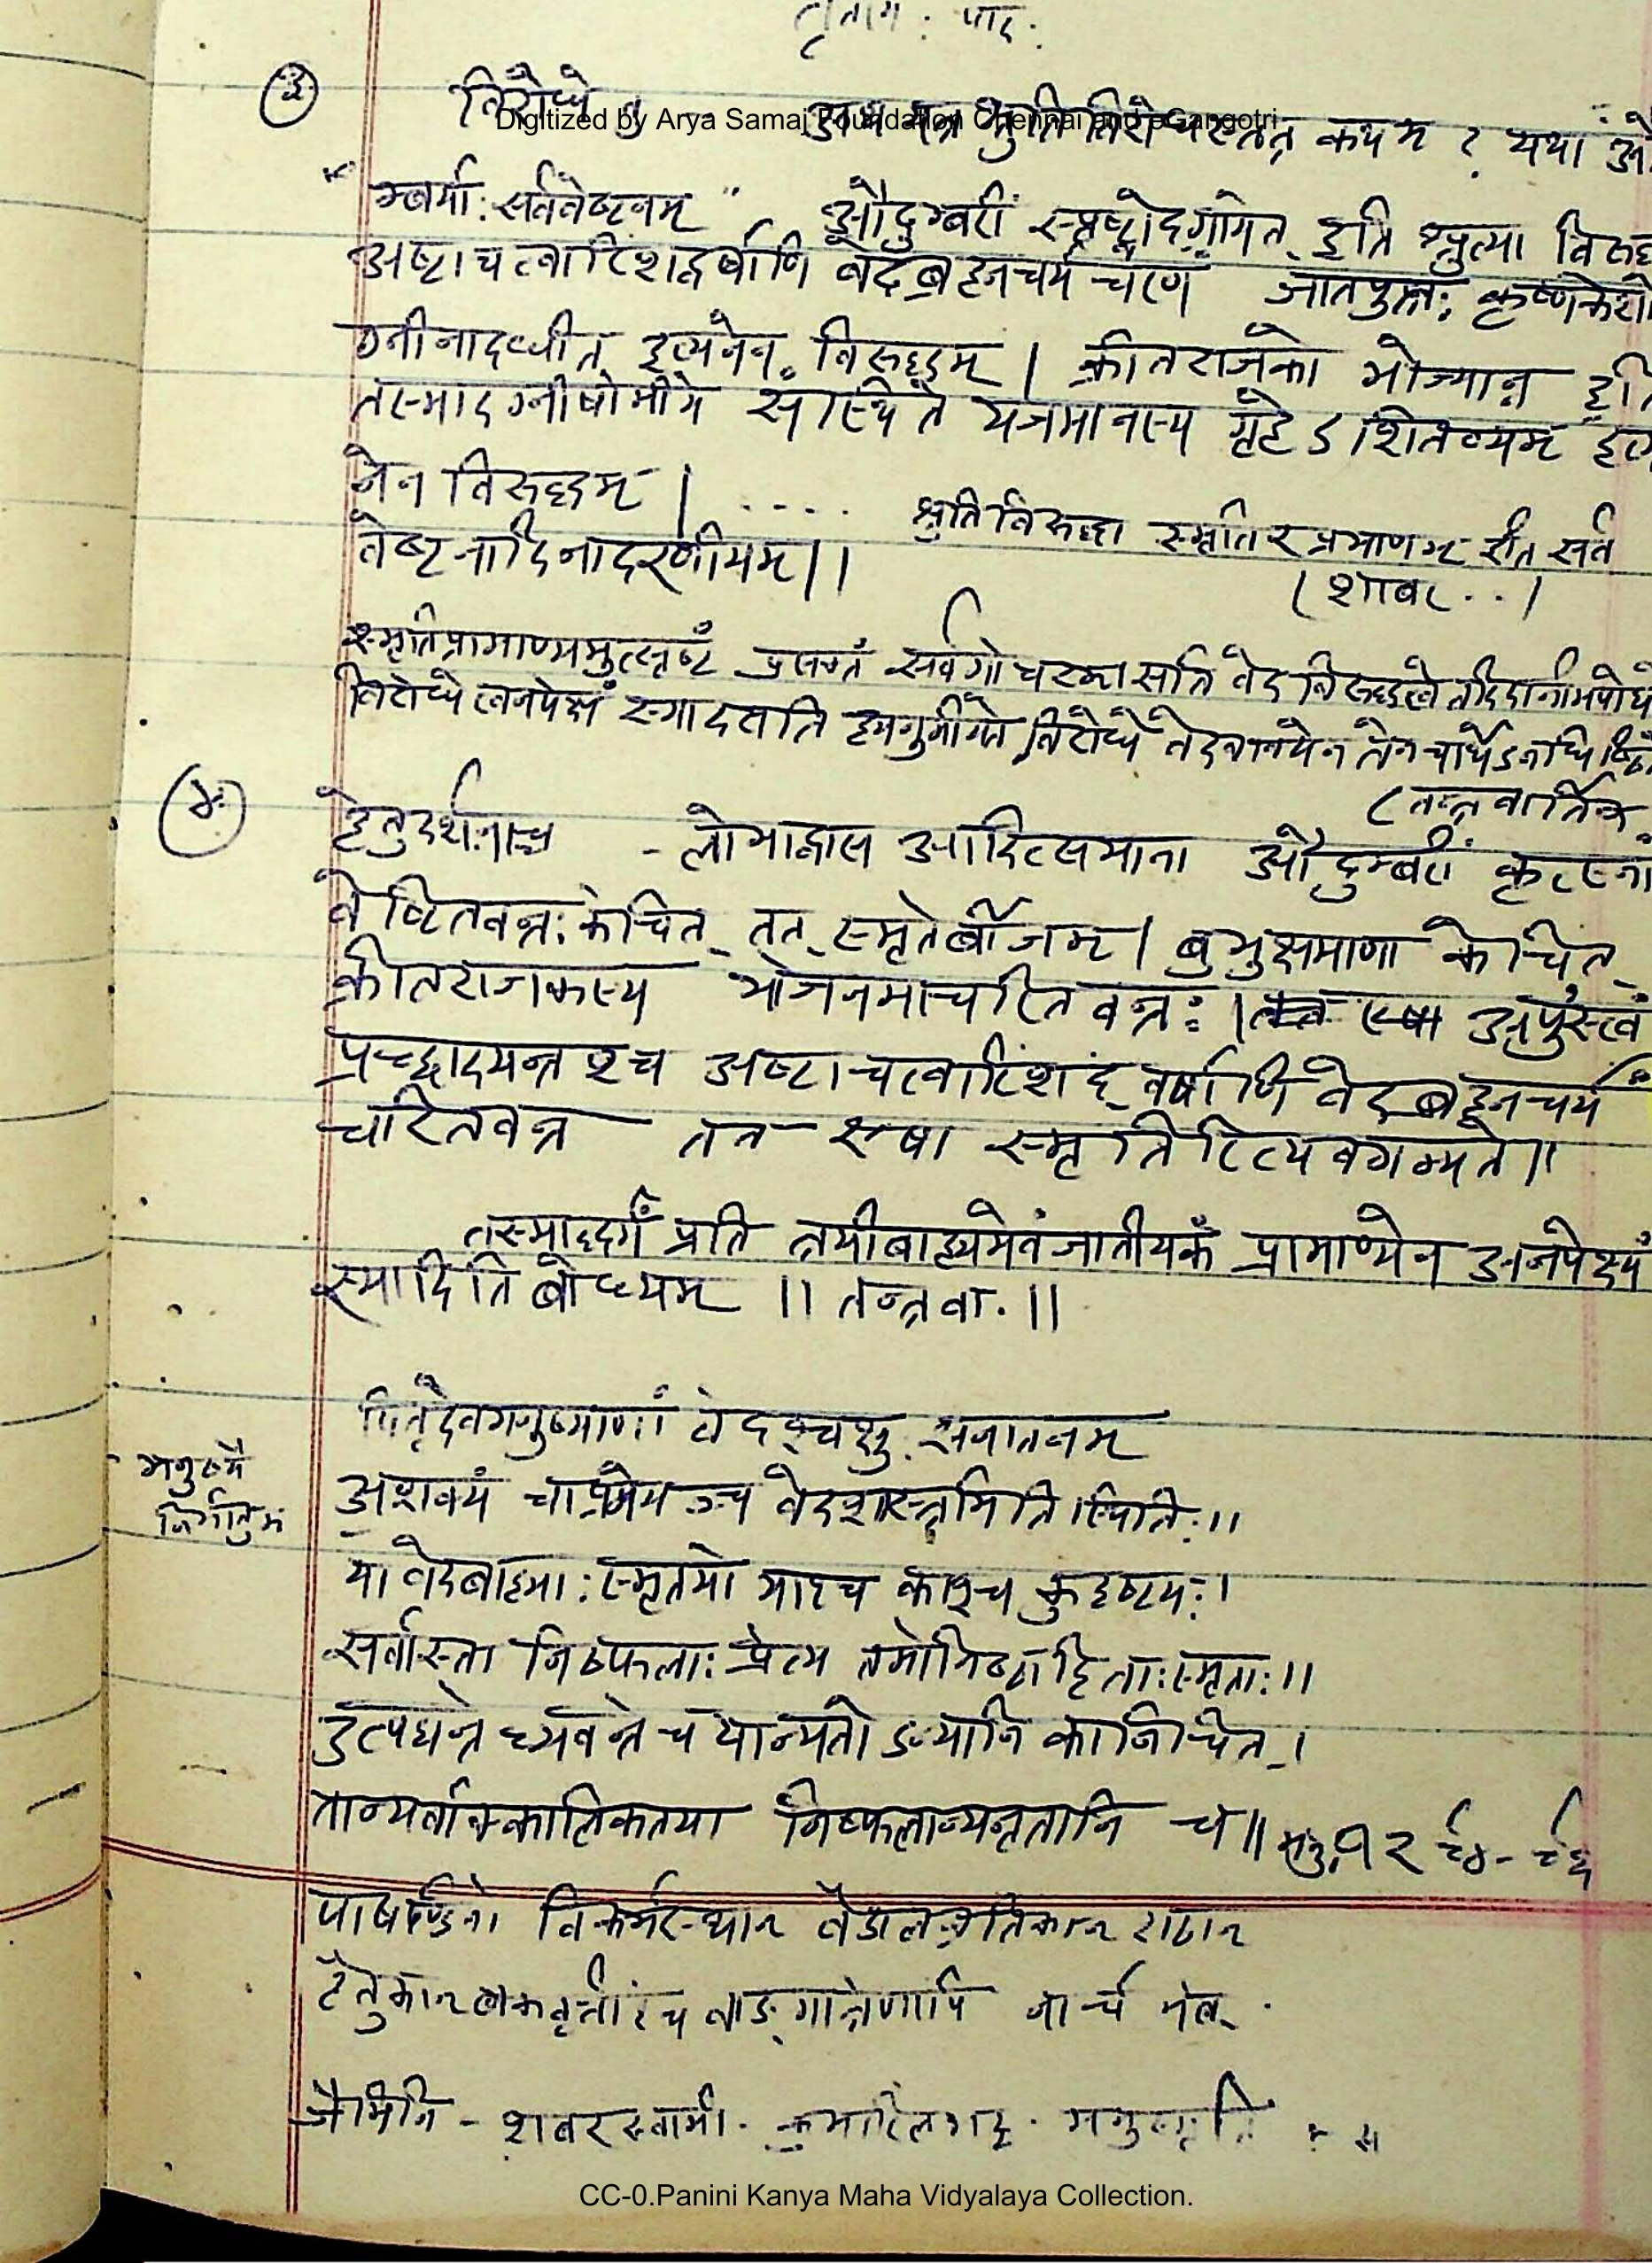 तृतीय: पाद:
Digitized by Arya Samaj Foundation Chennai and eGangotri
३ विरोधे तु अथ यत्र श्रुतिविरोधस्तत्र कथम ? यथा औ
म्बर्या: सर्ववेष्टनम् " औदुम्बरीं स्पृष्ट्वोद्गायेत् इति श्रुत्या विरुद्ध
अष्टाचत्वारिंशद्वर्षाणि वेदब्रह्मचर्य चरणं जातपुत्र: कृष्णकेशो
ग्नीनादधीत इत्यनेन विरुद्धम् | क्रीतराजको भोज्यान्न इति
तस्मादग्नीषोमीये संस्थिते यजमानस्य गृहेऽशितव्यम् इत्य
नेन विरुद्धम् | .... श्रुतिविरुद्धा स्मृतिरप्रमाणम् इति सर्व
वेष्टनादिनादरणीयम् ||
(शाबर . .)
स्मृतिप्रामाण्यमुत्सृष्टं प्रसक्तं सर्वगोचरम् सति वेदविरुद्धत्वे तदिदानीमपोद्यते
विरोधे त्वनपेक्षं स्यादसति ह्यनुमीयते विरोधे वेदवाक्येन तेन चार्थेऽनधिष्ठि
(तन्त्रवार्तिक
४ हेतुदर्शनाच्च - लोभाद्वास आदित्समाना औदुम्बरीं कृत्स्नां
वेष्टितवन्त: केचित् तत् स्मृतेर्बीजम् | बुभुक्षमाणा केचित्
क्रीतराजकस्य भोजनमाचरितवन्त: | अपुंस्त्वं
प्रच्छादयन्तश्च अष्टाचत्वारिंशद् वर्षाणि वेदब्रह्मचर्यं
चरितवन्त तत एषा स्मृतिरित्यवगम्यते ||
तस्माद्धर्मं प्रति त्रयीबाह्यमेवंजातीयकं प्रामाण्येन अनपेक्ष्यं
स्यादिति बोध्यम् || तन्त्रवा. ||
पितृदेवमनुष्याणां वेदश्चक्षु: सनातनम्
मनुष्यै
निर्मातुमं
अशक्यं चाप्रमेयञ्च वेदशास्त्रमिति स्थिति: ||
या वेदबाह्या: स्मृतयो याश्च काश्च कुदृष्टय: |
सर्वास्ता निष्फला: प्रेत्य तमोनिष्ठा हि ता: स्मृता: ||
उत्पद्यन्ते च्यवन्ते च यान्यतोऽन्यानि कानिचित् |
तान्यर्वाक्कालिकतया निष्फलान्यनृतानि च || मनु. १२ ९४-९६
पाषण्डिनो विकर्मस्थान वैडालव्रतिकान शठान
हैतुकान बकवृत्तींश्च वाङ्मात्रेणापि नार्चयेत्
जैमिनि - शबरस्वामी. कुमारिलभट्ट. मनुस्मृति
CC-0.Panini Kanya Maha Vidyalaya Collection.